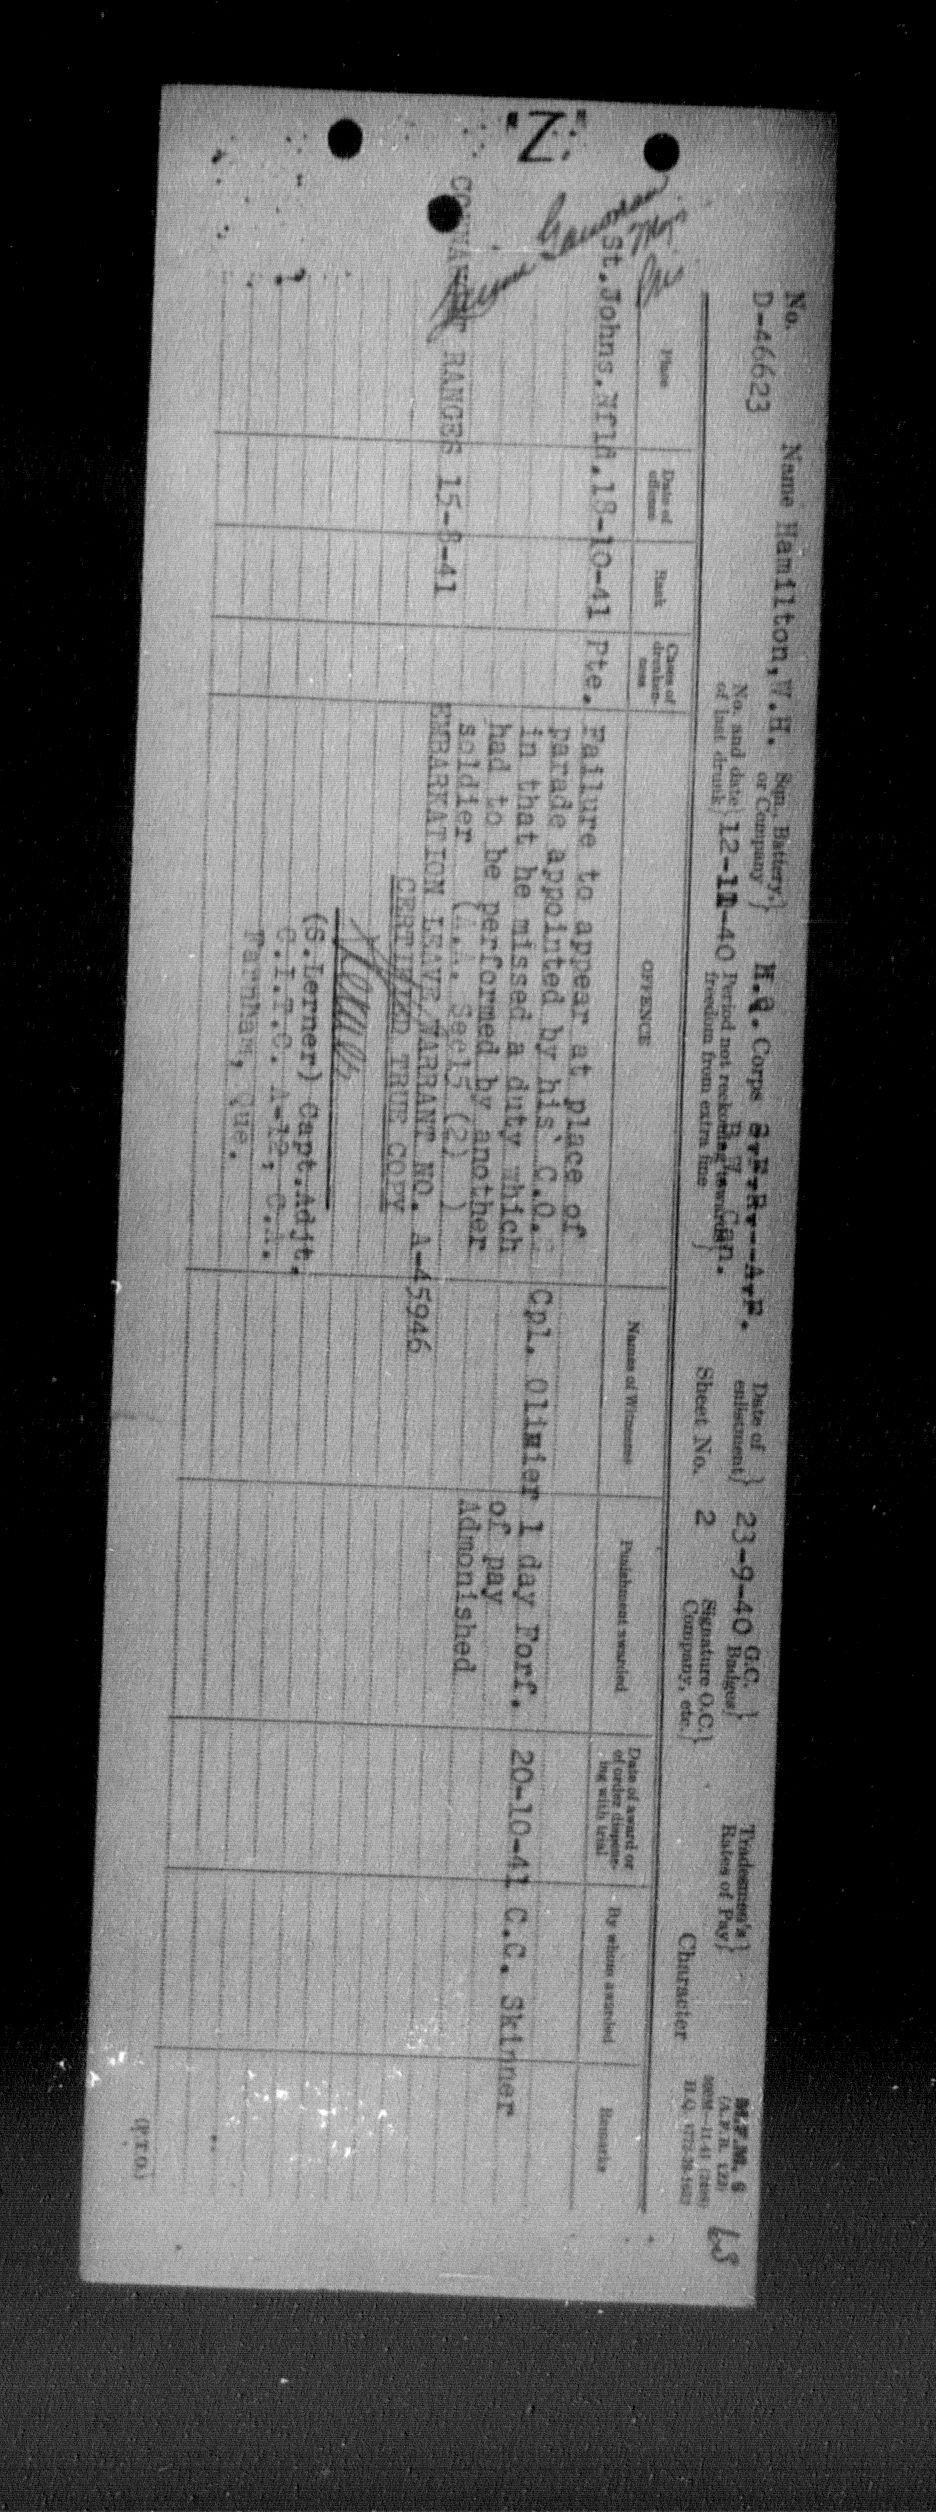 "Z"
No. D-46623 Name Hamilton, W.H. Sqn., Battery, or Company } H.Q. Corps
B.W. Can.
Date of enlistment } 23-9-40 G.C. Badges } Tradesmen's Rates of Pay } M.F.M. 6
No. and date of last drunk } 12-11-40 Period not reckoning towards freedom from extra fine } Sheet No. 2 Signature O.C. Company, etc. } Character
63
Place Date of offence Rank Cases of drunkenness OFFENCE Names of Witnesses Punishment awarded Date of award or of order dispensing with trial By whom awarded Remarks
St.Johns.Nfld.18-10-41 Pte. Failure to appear at place of
parade appointed by his C.O.
in that he missed a duty which Cpl. Olimier 1 day Forf. 20-10-41 C.C. Skinner
had to be performed by another of pay
soldier (A.A. Sec15 (2) ) Admonished
RANGES 15-8-41 EMBARKATION LEAVE WARRANT NO. A-45946
CERTIFIED TRUE COPY
(S.Lerner) Capt.Adjt.
C.I.T.C. A-12, C.A.
Farnham, Que.
(P.T.O.)